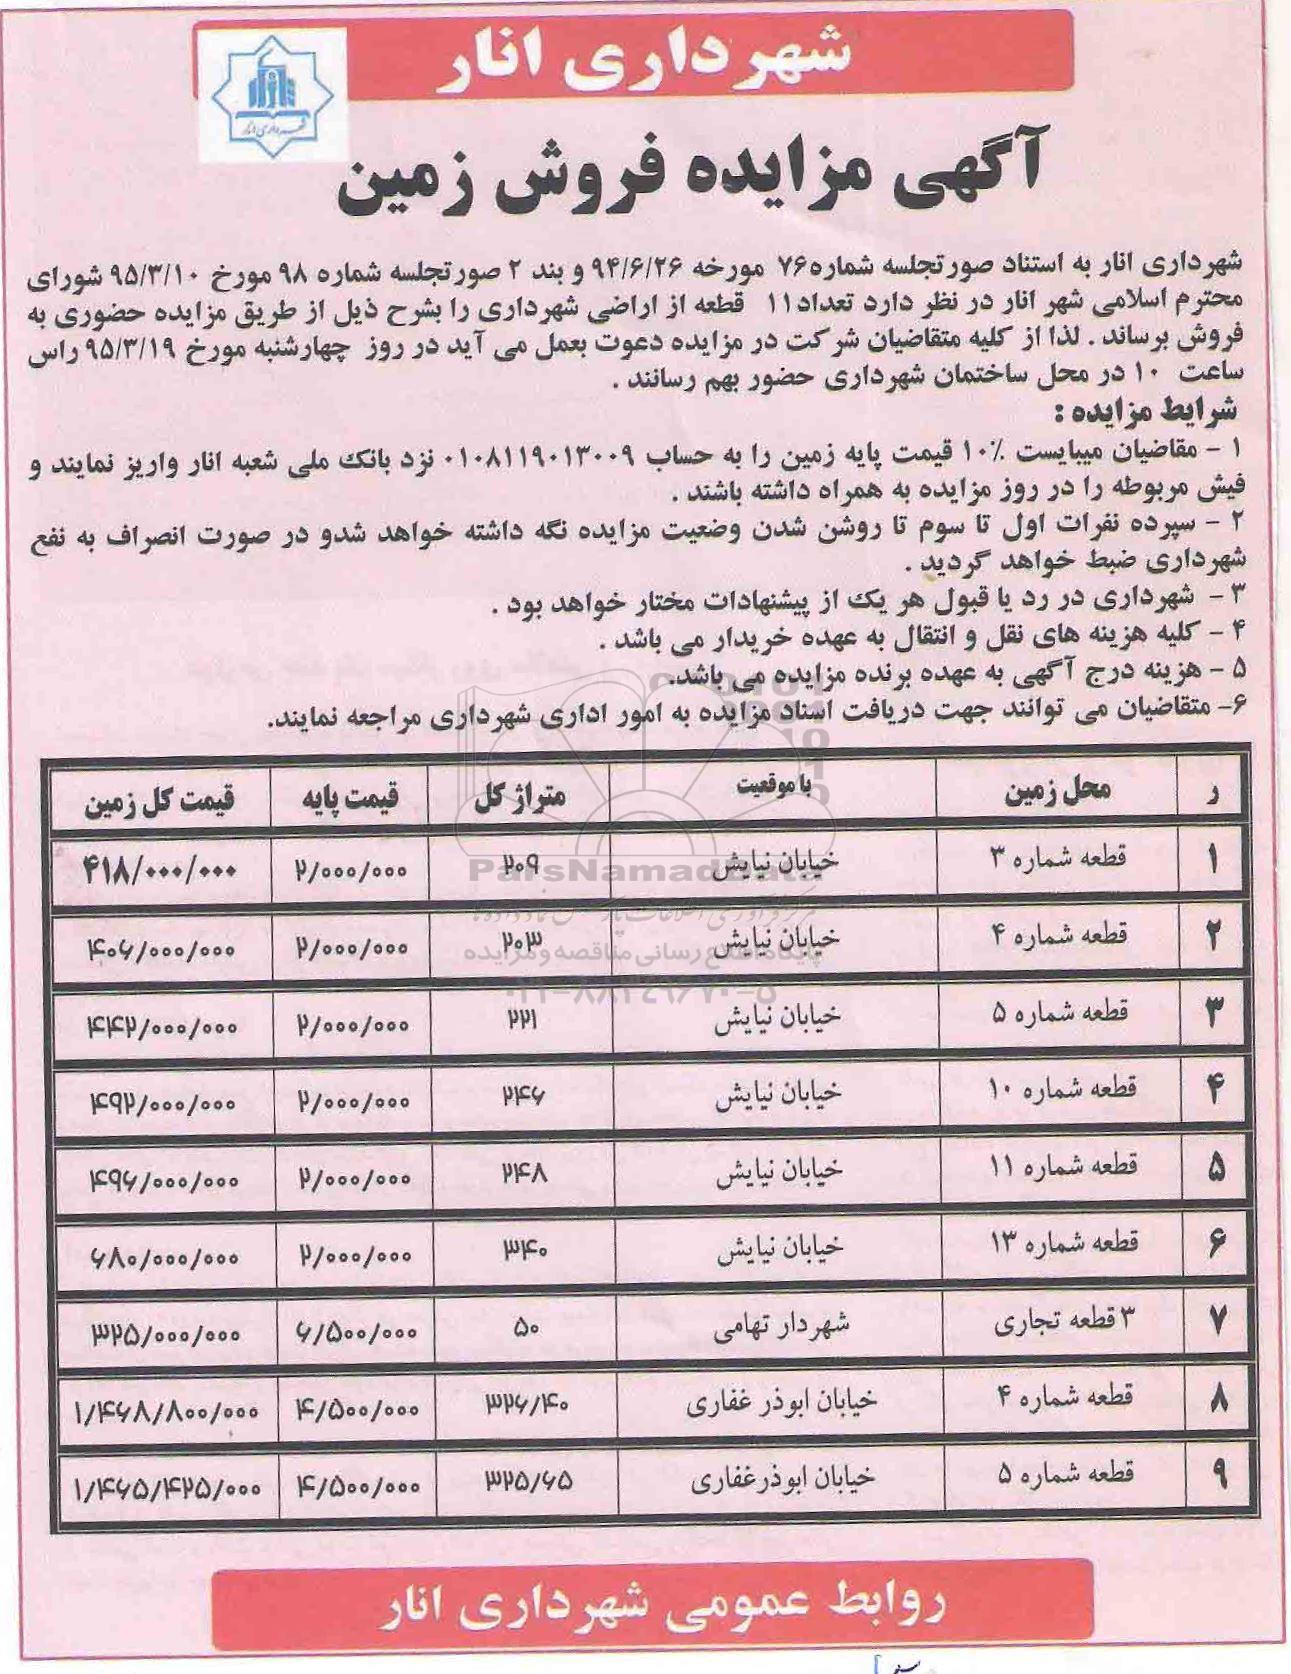 شهرداری انار
شهرداری انار
آگهی مزایده فروش زمین
شهرداری انار به استناد صورتجلسه شماره۷۶ مورخه ۹۴/۶/۲۶ و بند ۲ صورتجلسه شماره ۹۸ مورخ ۹۵/۳/۱۰ شورای
محترم اسلامی شهر انار در نظر دارد تعداد۱۱ قطعه از اراضی شهرداری را بشرح ذیل از طریق مزایده حضوری به
فروش برساند . لذا از کلیه متقاضیان شرکت در مزایده دعوت بعمل می آید در روز چهارشنبه مورخ ۹۵/۳/۱۹ راس
ساعت ۱۰ در محل ساختمان شهرداری حضور بهم رسانند .
شرایط مزایده :
۱ – مقاضیان میبایست ۱۰٪ قیمت پایه زمین را به حساب ۰۱۰۸۱۱۹۰۱۳۰۰۹ نزد بانک ملی شعبه انار واریز نمایند و
فیش مربوطه را در روز مزایده به همراه داشته باشند .
۲ – سپرده نفرات اول تا سوم تا روشن شدن وضعیت مزایده نگه داشته خواهد شدو در صورت انصراف به نفع
شهرداری ضبط خواهد گردید .
۳ – شهرداری در رد یا قبول هر یک از پیشنهادات مختار خواهد بود .
۴ – کلیه هزینه های نقل و انتقال به عهده خریدار می باشد .
۵ – هزینه درج آگهی به عهده برنده مزایده می باشد.
۶– متقاضیان می توانند جهت دریافت اسناد مزایده به امور اداری شهرداری مراجعه نمایند.
ر محل زمین با موقعیت متراژ کل قیمت پایه قیمت کل زمین
۱ قطعه شماره ۳ خیابان نیایش ۲۰۹ ۲/۰۰۰/۰۰۰ ۴۱۸/۰۰۰/۰۰۰
۲ قطعه شماره ۴ خیابان نیایش ۲۰۳ ۲/۰۰۰/۰۰۰ ۴۰۶/۰۰۰/۰۰۰
۳ قطعه شماره ۵ خیابان نیایش ۲۲۱ ۲/۰۰۰/۰۰۰ ۴۴۲/۰۰۰/۰۰۰
۴ قطعه شماره ۱۰ خیابان نیایش ۲۴۶ ۲/۰۰۰/۰۰۰ ۴۹۲/۰۰۰/۰۰۰
۵ قطعه شماره ۱۱ خیابان نیایش ۲۴۸ ۲/۰۰۰/۰۰۰ ۴۹۶/۰۰۰/۰۰۰
۶ قطعه شماره ۱۳ خیابان نیایش ۳۴۰ ۲/۰۰۰/۰۰۰ ۶۸۰/۰۰۰/۰۰۰
۷ ۳ قطعه تجاری شهردار تهامی ۵۰ ۶/۵۰۰/۰۰۰ ۳۲۵/۰۰۰/۰۰۰
۸ قطعه شماره ۴ خیابان ابوذر غفاری ۳۲۶/۴۰ ۴/۵۰۰/۰۰۰ ۱/۴۶۸/۸۰۰/۰۰۰
۹ قطعه شماره ۵ خیابان ابوذرغفاری ۳۲۵/۶۵ ۴/۵۰۰/۰۰۰ ۱/۴۶۵/۴۲۵/۰۰۰
ParsNamadData
پایگاه اطلاع رسانی مناقصه و مزایده
۰۲۱–۸۸۳۴۹۶۷۰–۵
روابط عمومی شهرداری انار